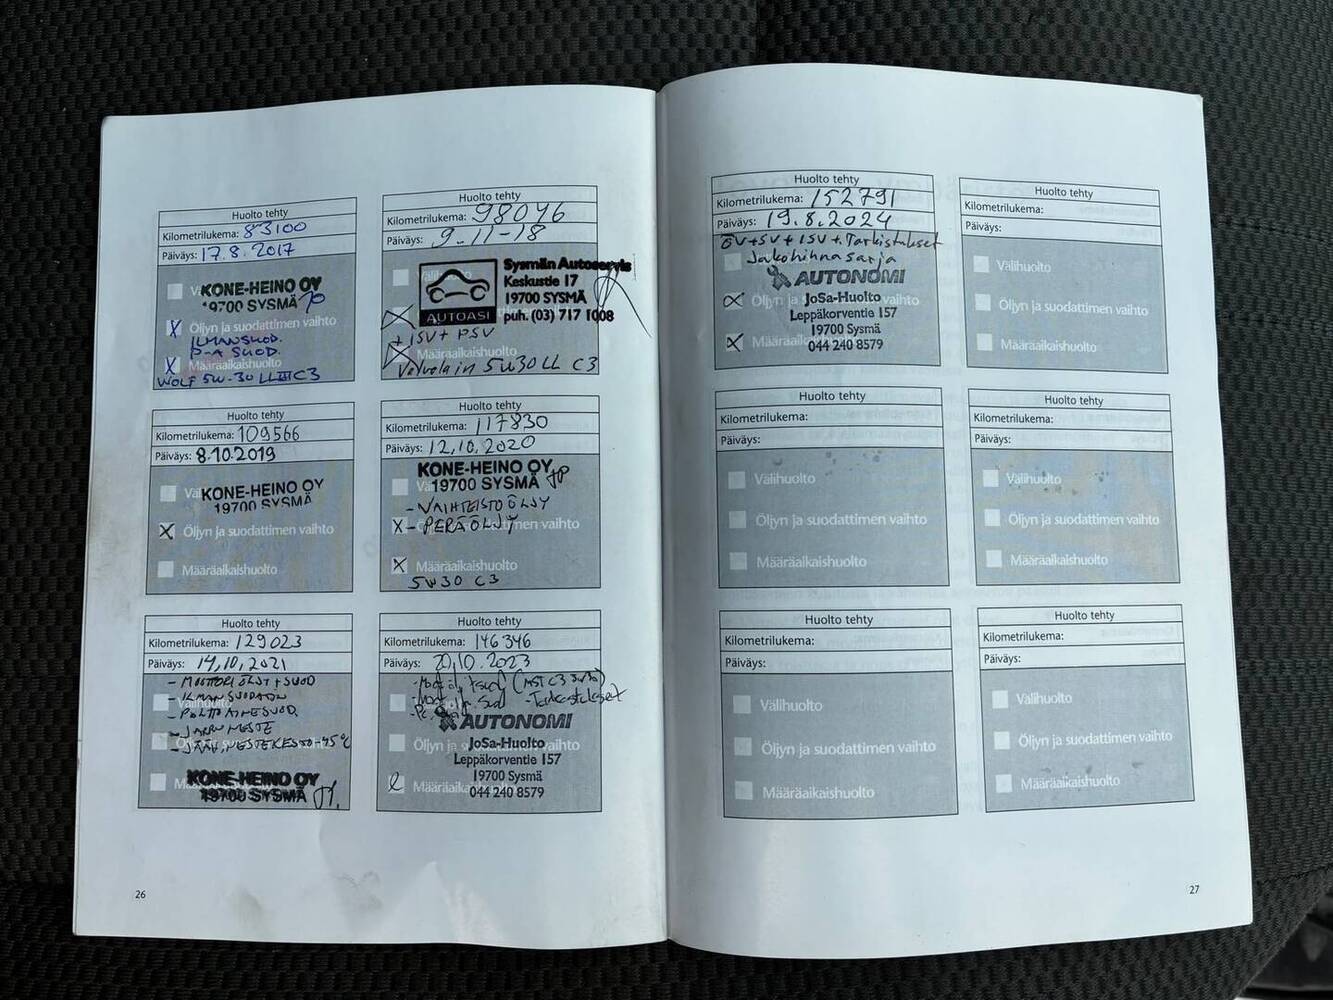 Huolto tehty
Kilometrilukema: 83100
Päiväys: 17.8.2017
KONE-HEINO OY
19700 SYSMÄ
X Öljyn ja suodattimen vaihto
ILMANSUOD.
P-A SUOD.
X Määräaikaishuolto
WOLF 5W-30 LL III C3
Huolto tehty
Kilometrilukema: 98046
Päiväys: 9-11-18
Sysmän Autoservis
Keskustie 17
19700 SYSMÄ
AUTOASI puh. (03) 717 1008
+ ISV + PSV
Määräaikaishuolto
Valvolain 5W30 LL C3
Huolto tehty
Kilometrilukema: 109566
Päiväys: 8.10.2019
KONE-HEINO OY
19700 SYSMÄ
X Öljyn ja suodattimen vaihto
Määräaikaishuolto
Huolto tehty
Kilometrilukema: 117830
Päiväys: 12.10.2020
KONE-HEINO OY
19700 SYSMÄ
- VAIHTEISTOÖLJY
X - PERÄÖLJY
X Määräaikaishuolto
5W30 C3
Huolto tehty
Kilometrilukema: 129023
Päiväys: 14.10.2021
- MOOTTORIÖLJY + SUOD
- ILMANSUODATIN
- POLTTOAINESUOD.
- JARRUNESTE
- JÄÄHD.NESTE KESTO -45°C
KONE-HEINO OY
19700 SYSMÄ
Huolto tehty
Kilometrilukema: 146346
Päiväys: 20.10.2023
- Tarkastukset
AUTONOMI
JoSa-Huolto
Leppäkorventie 157
19700 Sysmä
Määräaikaishuolto
044 240 8579
26
Huolto tehty
Kilometrilukema: 152791
Päiväys: 19.8.2024
ÖV+SV+ISV+Tarkistukset
Jakohihnasarja
AUTONOMI
JoSa-Huolto
Leppäkorventie 157
19700 Sysmä
044 240 8579
Huolto tehty
Kilometrilukema:
Päiväys:
Välihuolto
Öljyn ja suodattimen vaihto
Määräaikaishuolto
Huolto tehty
Kilometrilukema:
Päiväys:
Välihuolto
Öljyn ja suodattimen vaihto
Määräaikaishuolto
Huolto tehty
Kilometrilukema:
Päiväys:
Välihuolto
Öljyn ja suodattimen vaihto
Määräaikaishuolto
Huolto tehty
Kilometrilukema:
Päiväys:
Välihuolto
Öljyn ja suodattimen vaihto
Määräaikaishuolto
Huolto tehty
Kilometrilukema:
Päiväys:
Välihuolto
Öljyn ja suodattimen vaihto
Määräaikaishuolto
27